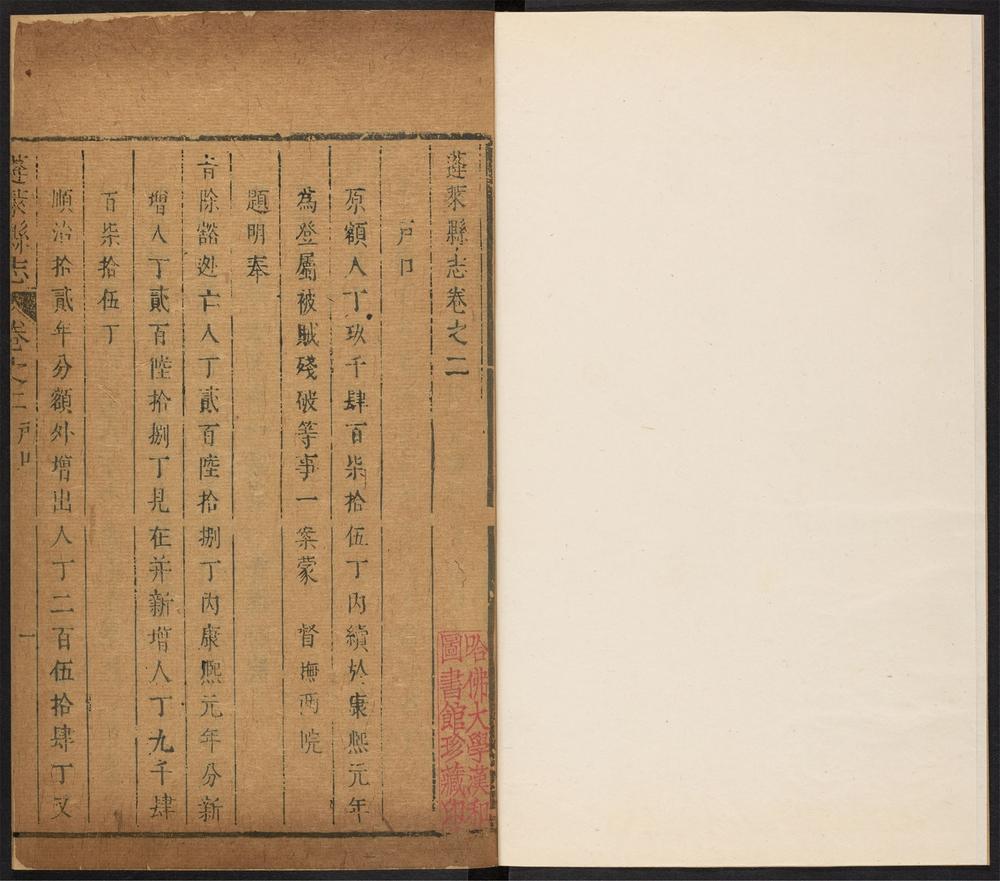 蓬萊縣志卷之二
戸口
原額人丁玖千肆百柒拾伍丁内續於康熙元年
爲登屬被賊殘破等事一案蒙　督撫両院
題明奉
㫖除豁逃亡人丁貳百陸拾捌丁内康熙元年分新
增人丁貳百陸拾捌丁見在并新增人丁九千肆
百柒拾伍丁
順治拾貳年分額外增出人丁二百伍拾肆丁又
蓬萊縣志　卷之二　戸口　一
哈佛大學漢和
圖書館珍藏印